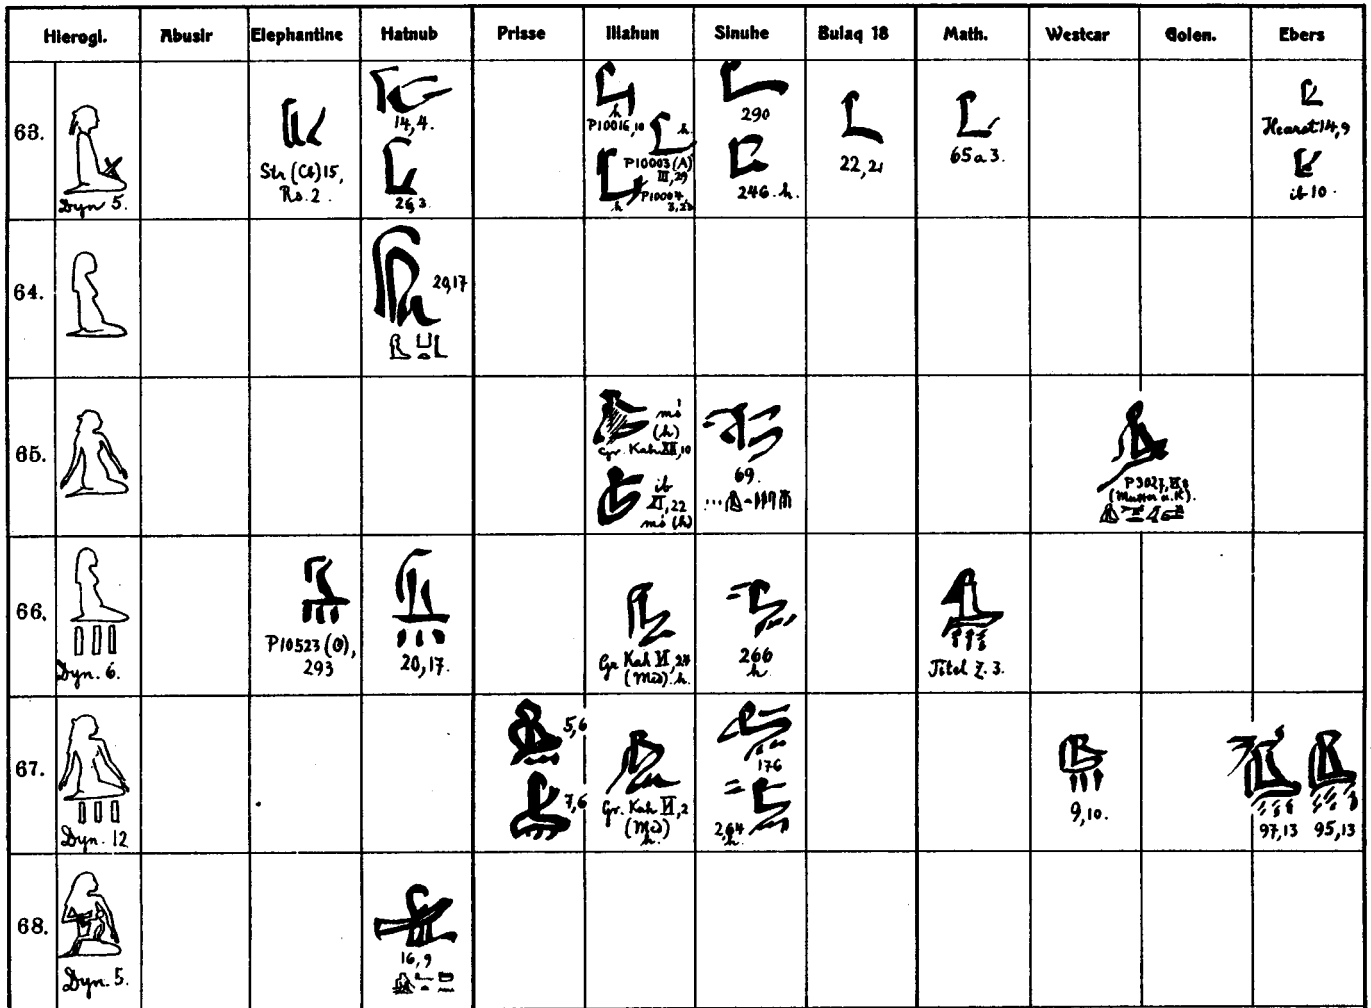 Hierogl. Abusir Elephantine Hatnub Prisse Illahun Sinuhe Bulaq 18 Math. Westcar Golen. Ebers
63.
Dyn 5.
Str (Cb) 15,
Rs. 2.
14,4.
26,3
h
P10016,10
h.
P10003 (A)
III,29
P10004
h
290
246. h.
22,21
65 a 3.
Hearst 14,9
ib 10.
64.
20,17
65.
mś
(h)
Gr. Kah. XII,10
ib
XI,22
mś (h)
69.
P3027,
(Mutter u. K).
66.
Dyn. 6.
P10523 (O),
293
20,17.
Gr Kah VI,
(Med). h.
266
h.
Titel Z. 3.
67.
Dyn. 12
5,6
7,6
Gr. Kah VI,2
(Med)
h.
176
264
h.
9,10.
97,13 95,13
68.
Dyn. 5.
16,9